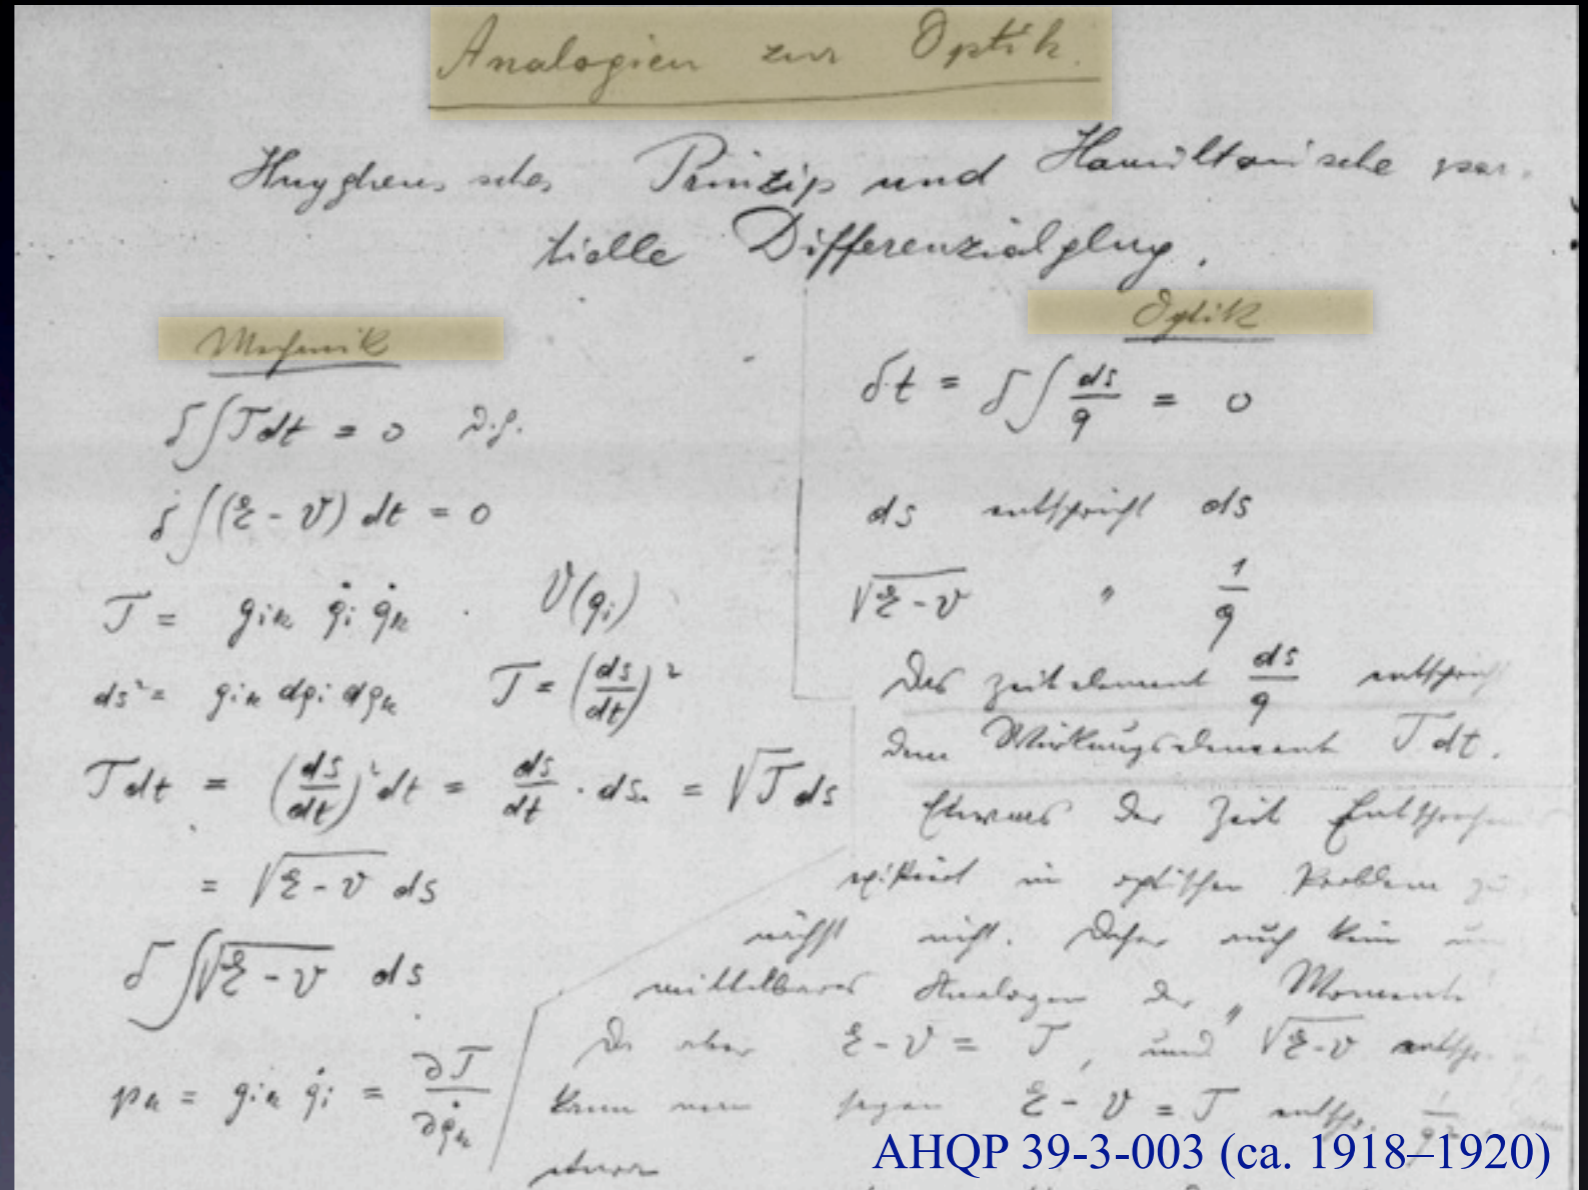 Analogien zur Optik.
Huyghenssches Prinzip und Hamiltonische par-
tielle Differenzialglng.
Mechanik
δ∫Tdt = 0 D.h.
δ∫(E - V) dt = 0
T = gᵢₖ q̇ᵢ q̇ₖ . V(qᵢ)
ds² = gᵢₖ dqᵢ dqₖ T = (ds/dt)²
Tdt = (ds/dt)² dt = ds/dt · ds. = √T ds
= √(E - V) ds
δ∫√(E - V) ds
pₖ = gᵢₖ q̇ᵢ = ∂T/∂q̇ₖ
Optik
δt = δ∫ ds/q = 0
ds entspricht ds
√(E - V) " 1/q
Das Zeitelement ds/q entspricht
dem Wirkungselement Tdt.
Etwas der Zeit Entsprechen
existiert im optischen Problem zu
nächst nicht. Daher auch kein un
mittelbares Analogon der „Momente
Da aber E - V = T, und √(E - V) entspr.
kann man sagen E - V = T entspr. 1/q²
etwa
AHQP 39-3-003 (ca. 1918–1920)